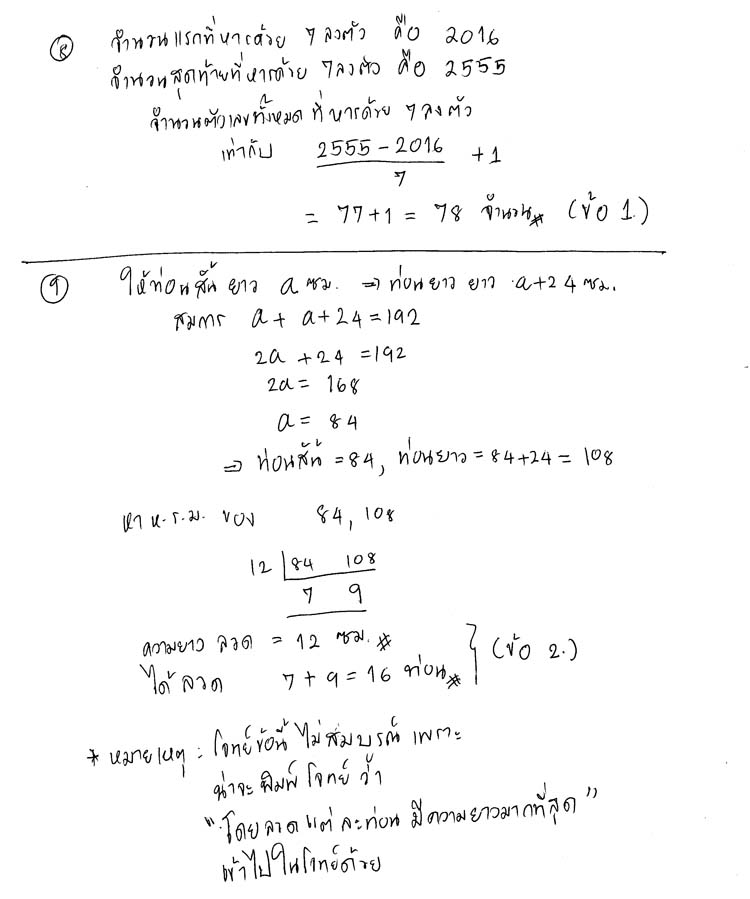 ๘ จำนวนแรกที่หารด้วย 7 ลงตัว คือ 2016
จำนวนสุดท้ายที่หารด้วย 7 ลงตัว คือ 2555
จำนวนตัวเลขทั้งหมด ที่หารด้วย 7 ลงตัว
เท่ากับ 2555 - 2016 + 1
7
= 77+1 = 78 จำนวน# (ข้อ 1.)
๙ ให้ท่อนสั้น ยาว a ซม. ⇒ ท่อนยาว ยาว a+24 ซม.
สมการ a + a+24 = 192
2a + 24 = 192
2a = 168
a = 84
⇒ ท่อนสั้น = 84, ท่อนยาว = 84+24 = 108
หา ห.ร.ม. ของ 84, 108
12 84 108
7 9
ความยาว ลวด = 12 ซม. #
ได้ ลวด 7 + 9 = 16 ท่อน# (ข้อ 2.)
* หมายเหตุ : โจทย์ข้อนี้ ไม่สมบูรณ์ เพราะ
น่าจะ พิมพ์ โจทย์ ว่า
"โดยลวดแต่ละท่อน มีความยาวมากที่สุด"
เข้าไปในโจทย์ด้วย